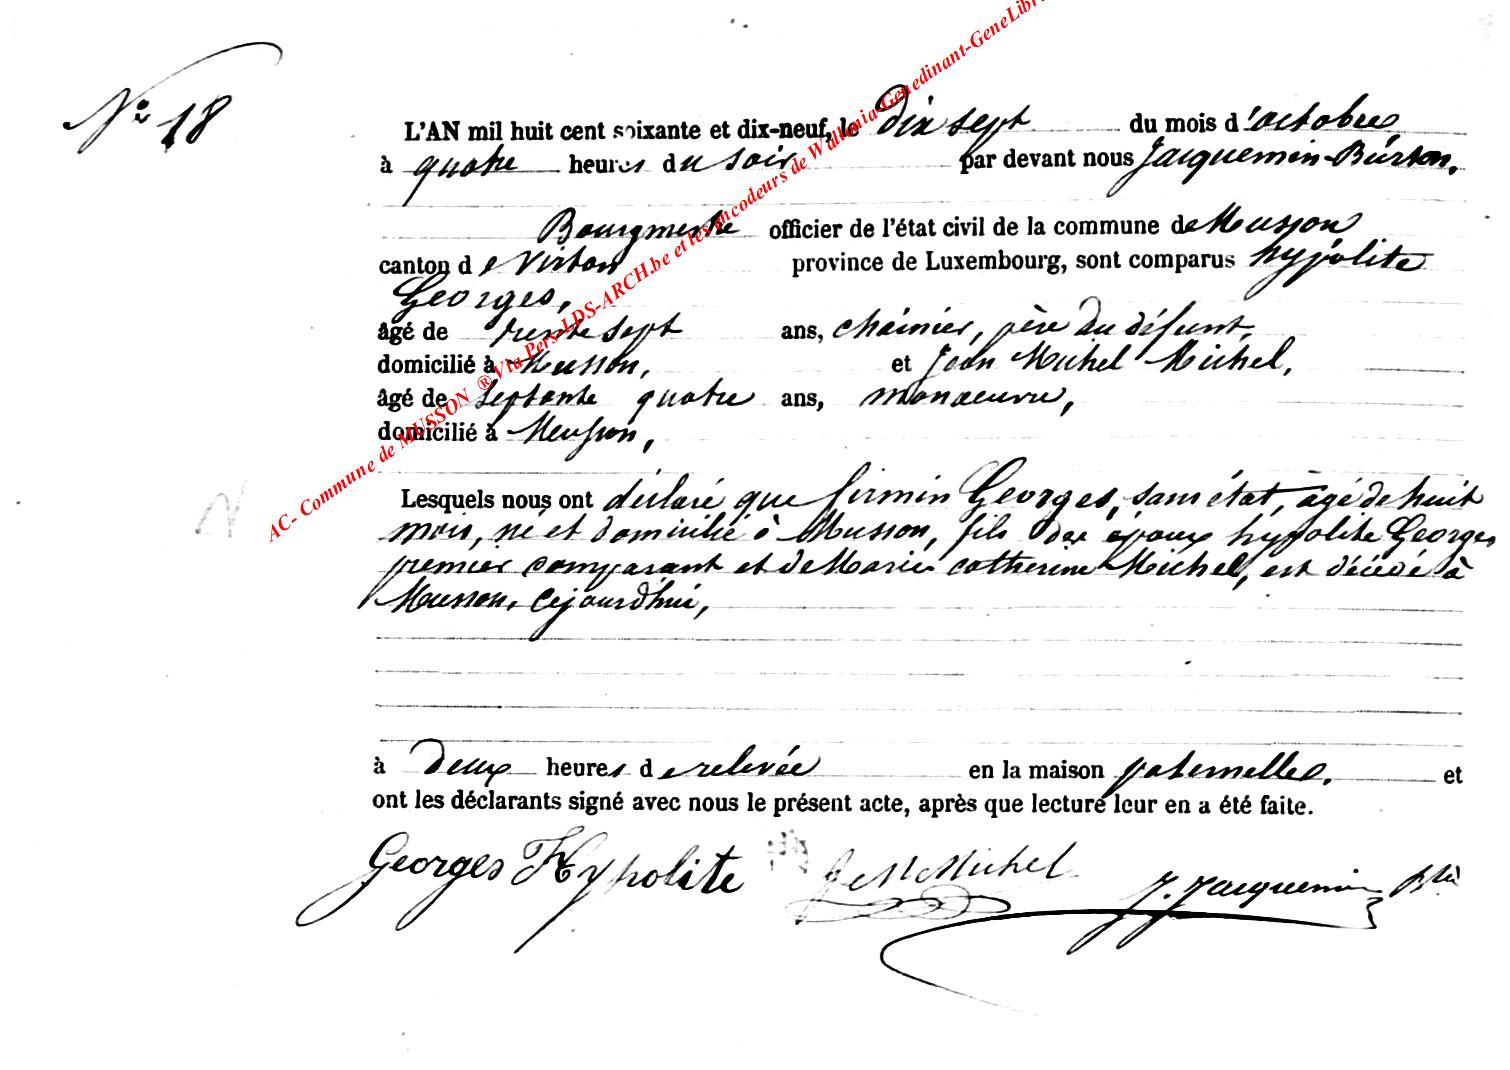 N° 18
L'AN mil huit cent soixante et dix-neuf, le Dix sept du mois d'octobre,
à quatre heures du soir par devant nous Jacquemin-Burton,
Bourgmestre officier de l'état civil de la commune de Musson
canton de Virton province de Luxembourg, sont comparus hypolite
Georges,
âgé de trente sept ans, chainier, père du défunt,
domicilié à Musson, et Jean Michel Michel,
âgé de septante quatre ans, manoeuvre,
domicilié à Musson,
Lesquels nous ont déclaré que firmin Georges, sans état, âgé de huit
mois, né et domicilié à Musson, fils des époux hypolite Georges
premier comparant et de Marie catherine Michel, est décédé à
Musson, cejourdhui,
à Deux heures de relevée en la maison paternelle, et
ont les déclarants signé avec nous le présent acte, après que lecture leur en a été faite.
Georges Hypolite J M Michel J. Jacquemin
AC- Commune de MUSSON ® Via Pers-LDS-ARCH.be et les encodeurs de Willania-Genedinant-GeneLibr